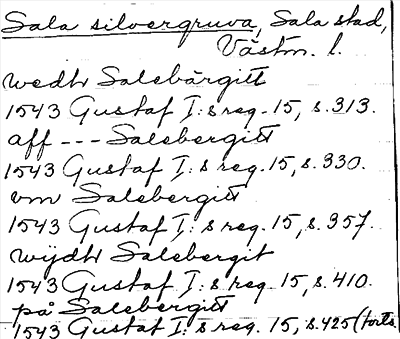 Sala silvergruva, Sala stad,
Västm. l.
wedh Salebärgitt
1543 Gustaf I:s reg. 15, s. 313.
aff --- Salebergitt
1543 Gustaf I:s reg. 15, s. 330.
vm Salebergitt
1543 Gustaf I:s reg. 15, s. 357.
wijdh Salebergit
1543 Gustaf I:s reg. 15, s. 410.
på Salebergitt
1543 Gustaf I:s reg. 15, s. 425 (forts.